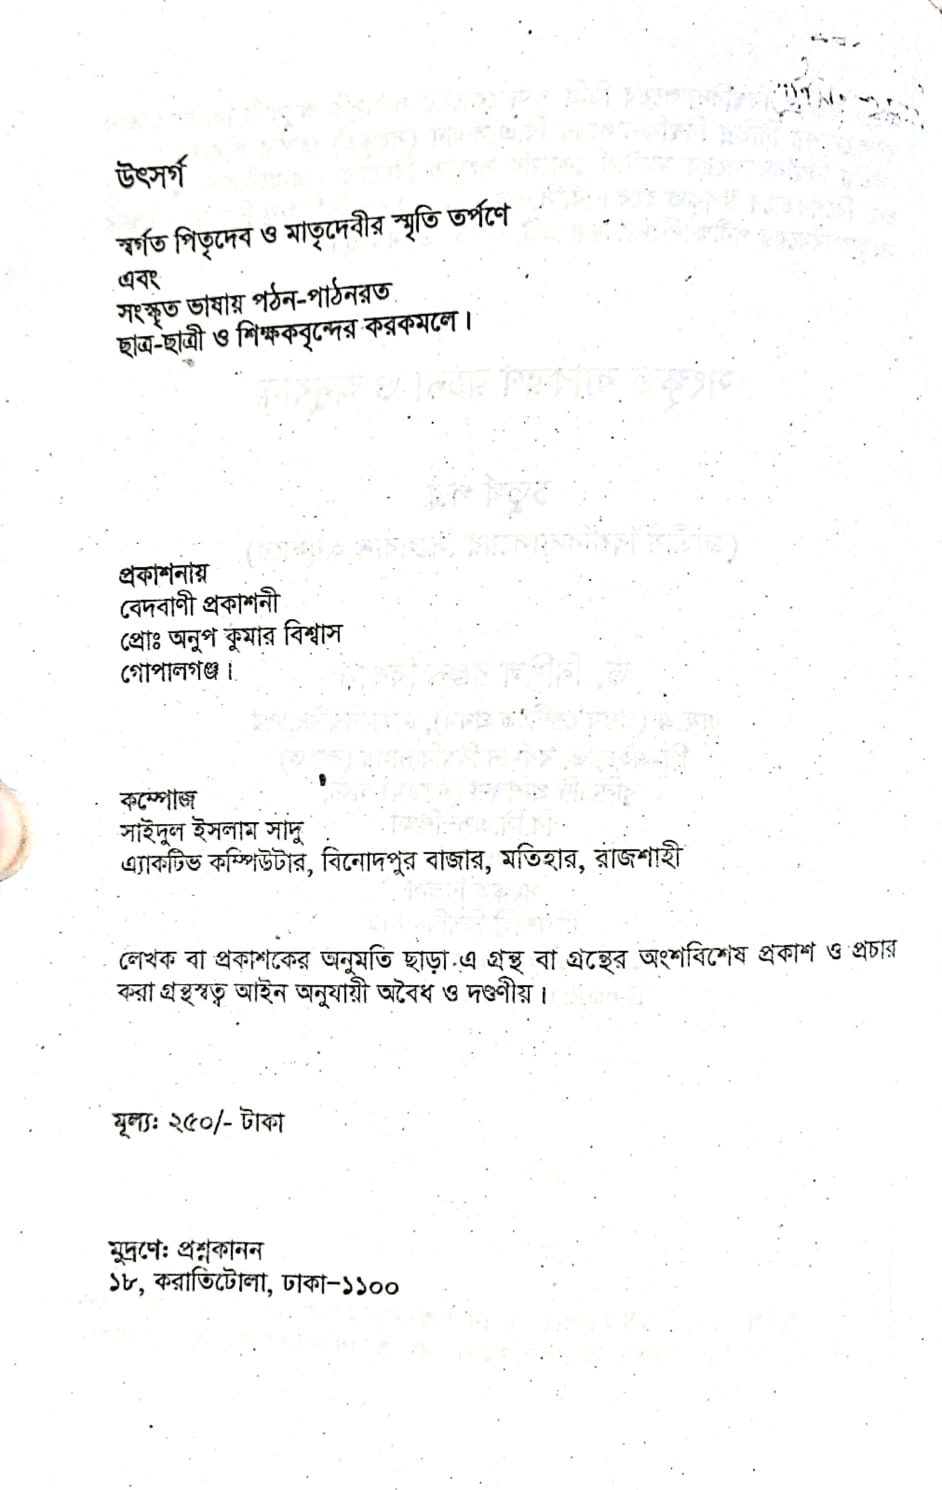 উৎসর্গ
স্বর্গত পিতৃদেব ও মাতৃদেবীর স্মৃতি তর্পণে
এবং
সংস্কৃত ভাষায় পঠন-পাঠনরত
ছাত্র-ছাত্রী ও শিক্ষকবৃন্দের করকমলে।
প্রকাশনায়
বেদবাণী প্রকাশনী
প্রোঃ অনুপ কুমার বিশ্বাস
গোপালগঞ্জ।
কম্পোজ
সাইদুল ইসলাম সাদু
এ্যাকটিভ কম্পিউটার, বিনোদপুর বাজার, মতিহার, রাজশাহী
লেখক বা প্রকাশকের অনুমতি ছাড়া এ গ্রন্থ বা গ্রন্থের অংশবিশেষ প্রকাশ ও প্রচার
করা গ্রন্থস্বত্ব আইন অনুযায়ী অবৈধ ও দণ্ডণীয়।
মূল্য: ২৫০/- টাকা
মুদ্রণে: প্রশ্নকানন
১৮, করাতিটোলা, ঢাকা-১১০০